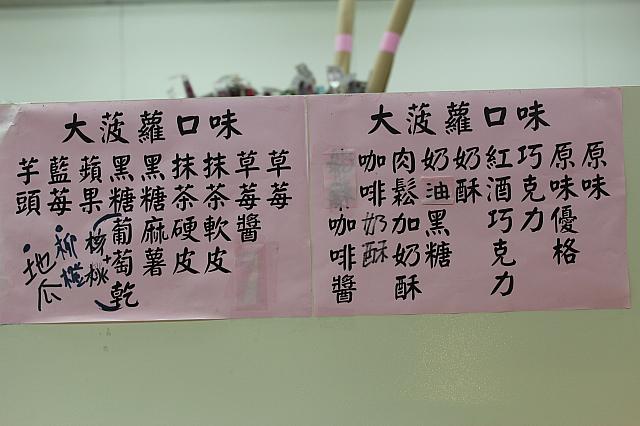 大菠蘿口味
原味
原味優格
巧克力
紅酒巧克力
奶酥
奶油黑糖
肉鬆加奶酥
咖啡奶酥
咖啡醬
大菠蘿口味
草莓
草莓醬
抹茶軟皮
抹茶硬皮
黑糖麻薯
黑糖(葡萄乾+核桃)
蘋果
藍莓
芋頭
柳橙
地瓜